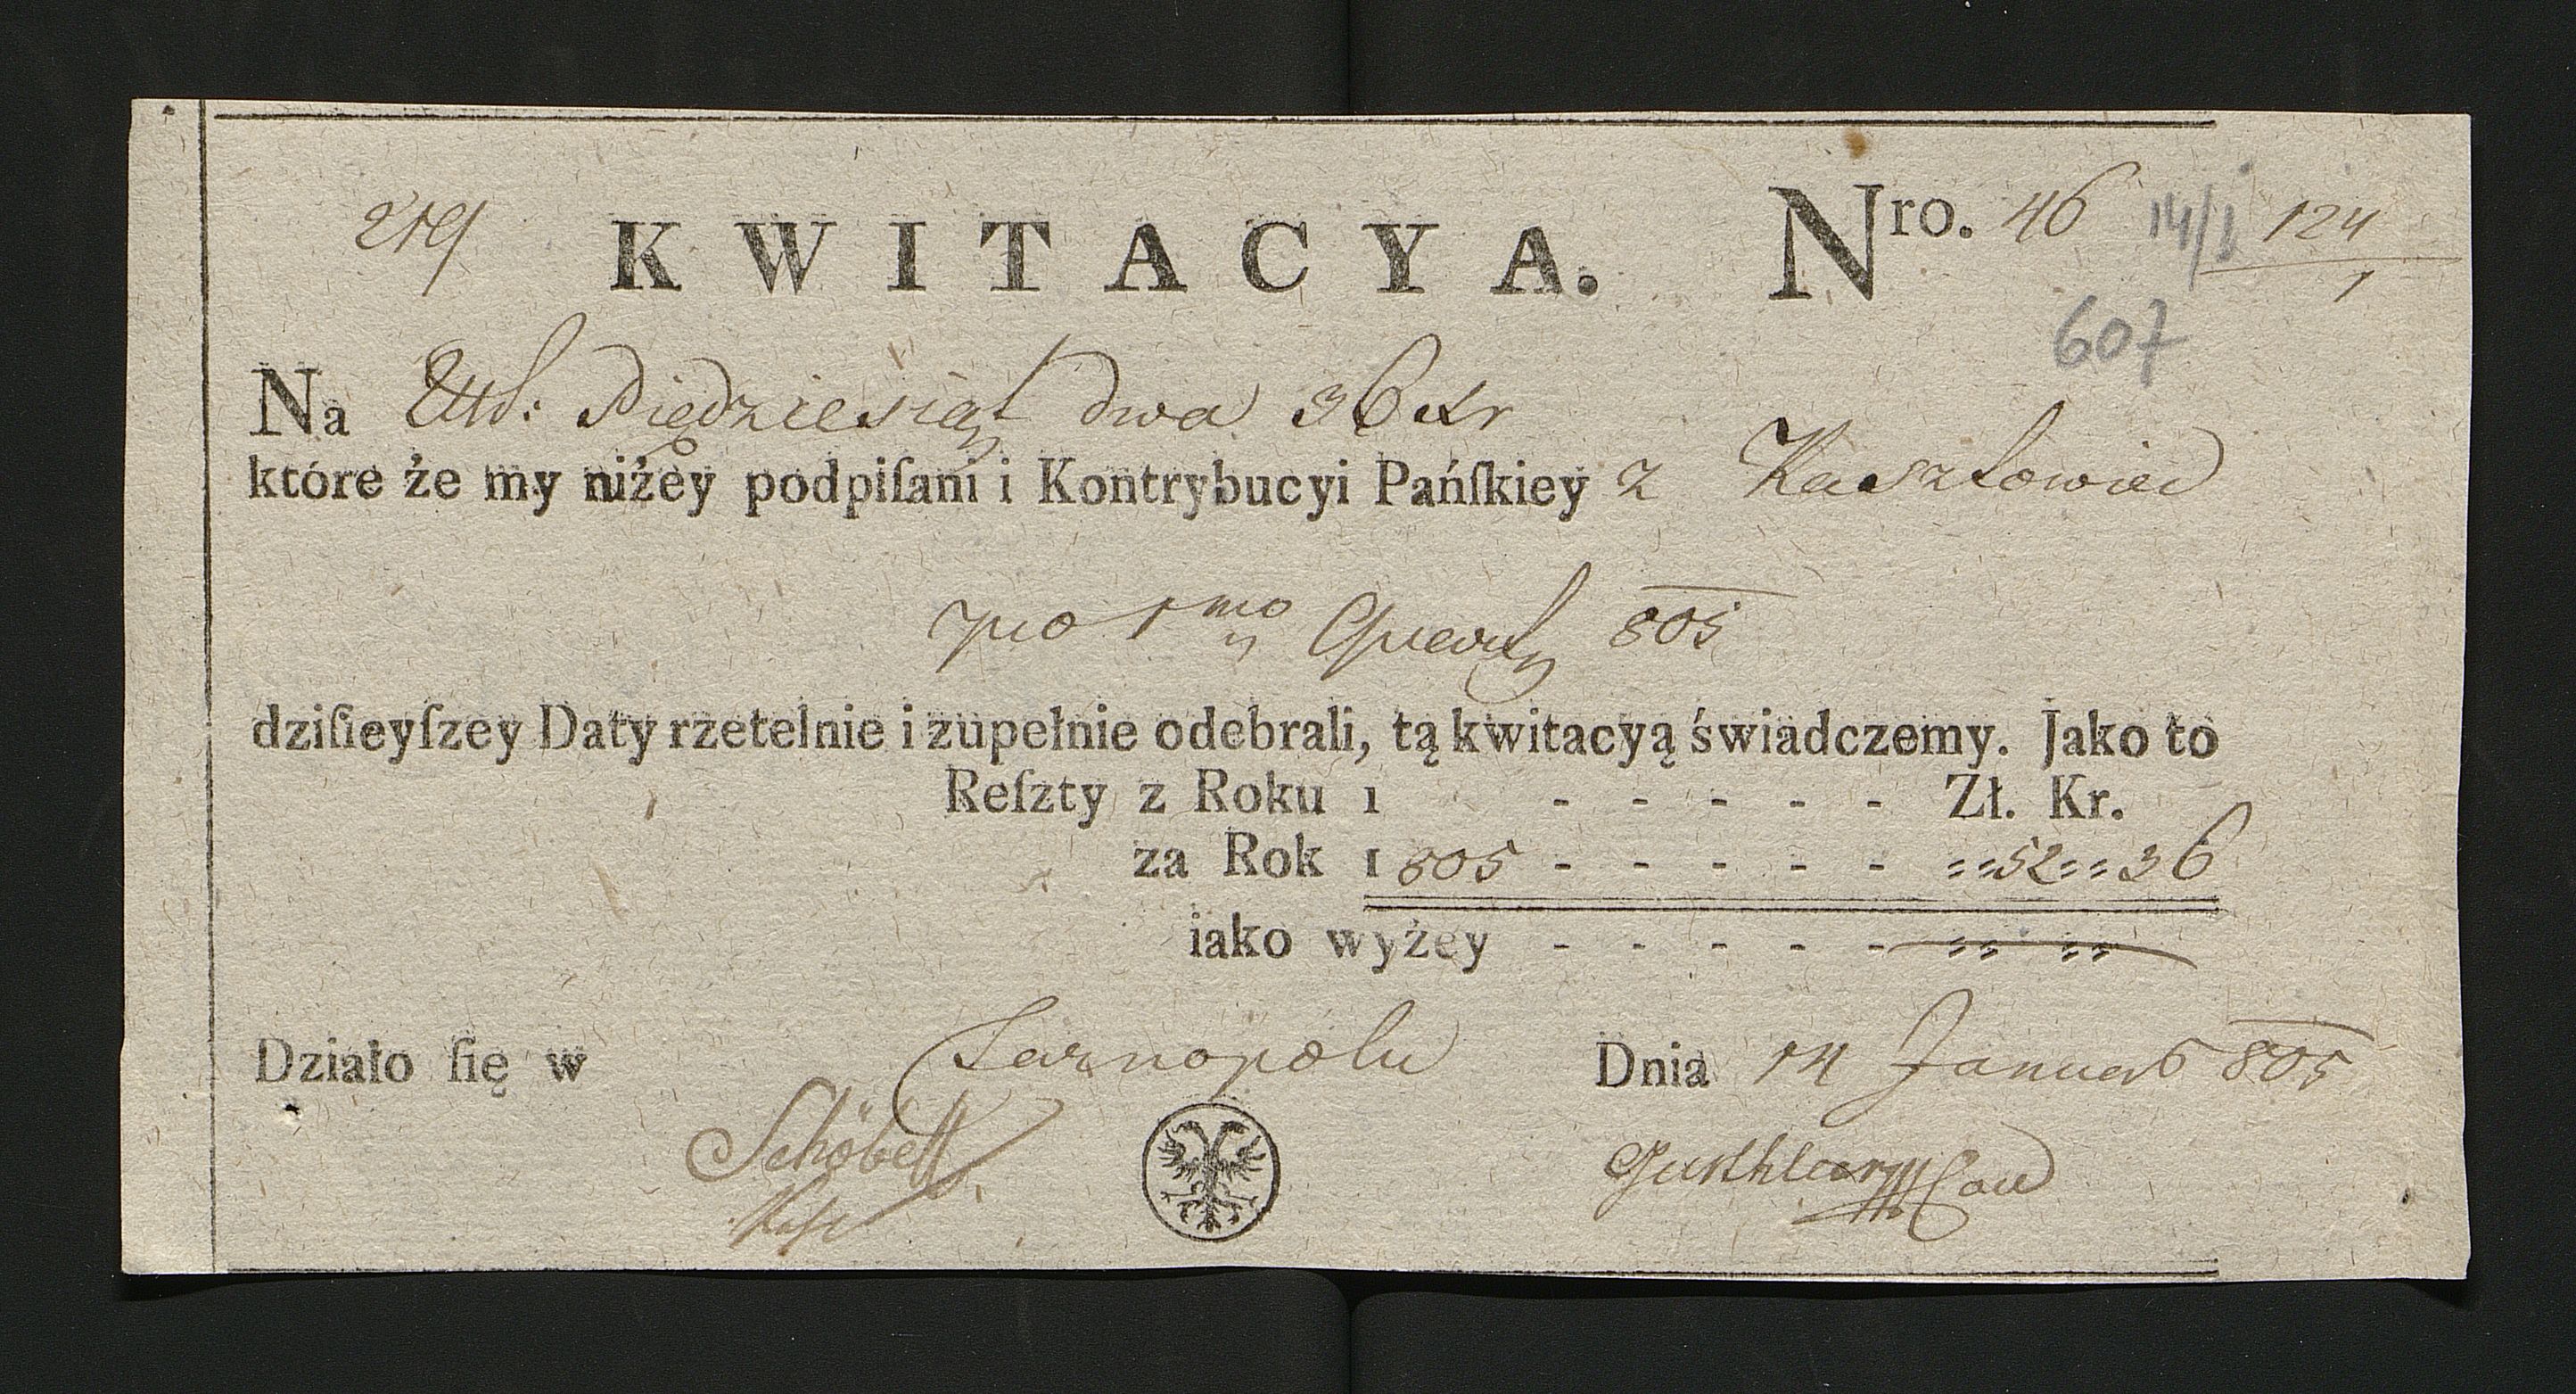 219 KWITACYA. Nro. 46 14/1 124
1
607
Na Piędziesiąt dwa 36 xr
które że my niżey podpiſani i Kontrybucyi Pańſkiey z Kaszłowiec
pro 1mo 805
dziſieyſzey Daty rzetelnie i zupełnie odebrali, tą kwitacyą świadczemy. Jako to
Reſzty z Roku 1 - - - - - Zł. Kr.
za Rok 1805 - - - - - 52 36
iako wyżey - - - - -
Działo ſię w Tarnopolu Dnia 14 Januar 805
Schöbell